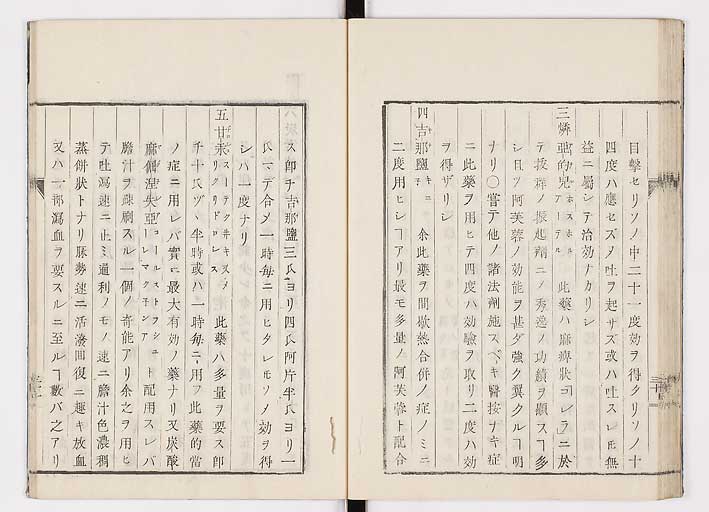 目撃セリソノ中二十一度効ヲ得タリソノ十
四度ハ應セズメ吐ヲ起サズ或ハ吐スレ𪜈無
益ニ屬シテ治効ナカリシ
三 燐亞的兒 ホスホル アーテル 此藥ハ麻痺狀コレラニ於
テ抜群ノ振起劑ニメ秀逸ノ功績ヲ顯スヿ多
シ且ツ阿芙蓉ノ効能ヲ甚ダ強ク翼クルヿ明
ナリ○嘗テ他ノ諸法劑施スベキ醫按ナキ症
ニ此藥ヲ用ヒテ四度ハ効驗ヲ取リ二度ハ効
ヲ得ザリシ
四 吉那鹽 キニ子 余此藥ヲ間歇熱合併ノ症ノミニ
二度用ヒシヿアリ最モ多量ノ阿芙蓉ト配合
ス即チ吉那鹽三氏ヨリ四氏阿片半氏ヨリ一
氏マデ合メ一時毎ニ用ヒタレ𪜈ソノ効ヲ得
シハ一度ナリ
五 甘汞 スーテクヰキ 此藥ハ多量ヲ要ス即
チ十氏ヅヽ半時或ハ一時毎ニ用フ此藥的當
ノ症ニ用レバ實ニ最大有効ノ藥ナリ又炭酸
麻倔涅失亞 ト配用スレバ
膽汁ヲ疎刷スル一個ノ奇能アリ余之ヲ用ヒ
テ吐瀉速ニ止ミ通利ノモノ速ニ膽汁色濃稠
蒸餅狀トナリ脉勢速ニ活潑回復ニ趣キ放血
又ハ一部瀉血ヲ要スルニ至ルヿ數バ之アリ